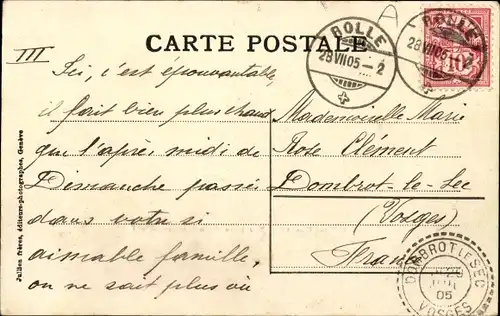 III
CARTE POSTALE
ROLLE
28 VII 05 – 2
ROLLE
28 VII 05 – 2
10
Ici, c'est épouvantable,
il fait bien plus chaud
que l'après midi de
Dimanche passé
dans votre si
aimable famille,
on ne sait plus où
Mademoiselle Marie
Rose Clément
Dombrot-le-Sec
(Vosges)
France
DOMBROT LE SEC
05
VOSGES
Jullien frères, éditeurs-photographes, Genève